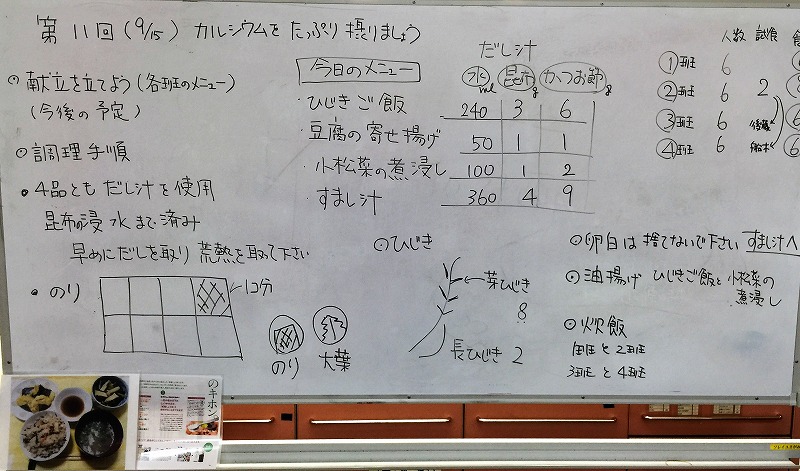 第11回(9/15) カルシウムを たっぷり 摂りましょう
⊙ 献立を立てよう(各班のメニュー)
(今後の予定)
⊙ 調理手順
• 4品とも だし汁を使用
昆布の浸水まで済み
早めにだしを取り 荒熱を取って下さい
• のり
1コ分
のり 大葉
今日のメニュー だし汁
水ml 昆布g かつお節g
・ひじきご飯 240 3 6
・豆腐の寄せ揚げ 50 1 1
・小松菜の煮浸し 100 1 2
・すまし汁 360 4 9
⊙ひじき
芽ひじき
8
長ひじき 2
人数 試食
①班 6
②班 6 2
③班 6
④班 6
⊙卵白は捨てないで下さい すまし汁へ
⊙油揚げ ひじきご飯と小松菜の
煮浸し
⊙炊飯
1班と2班
3班と4班
のキホン